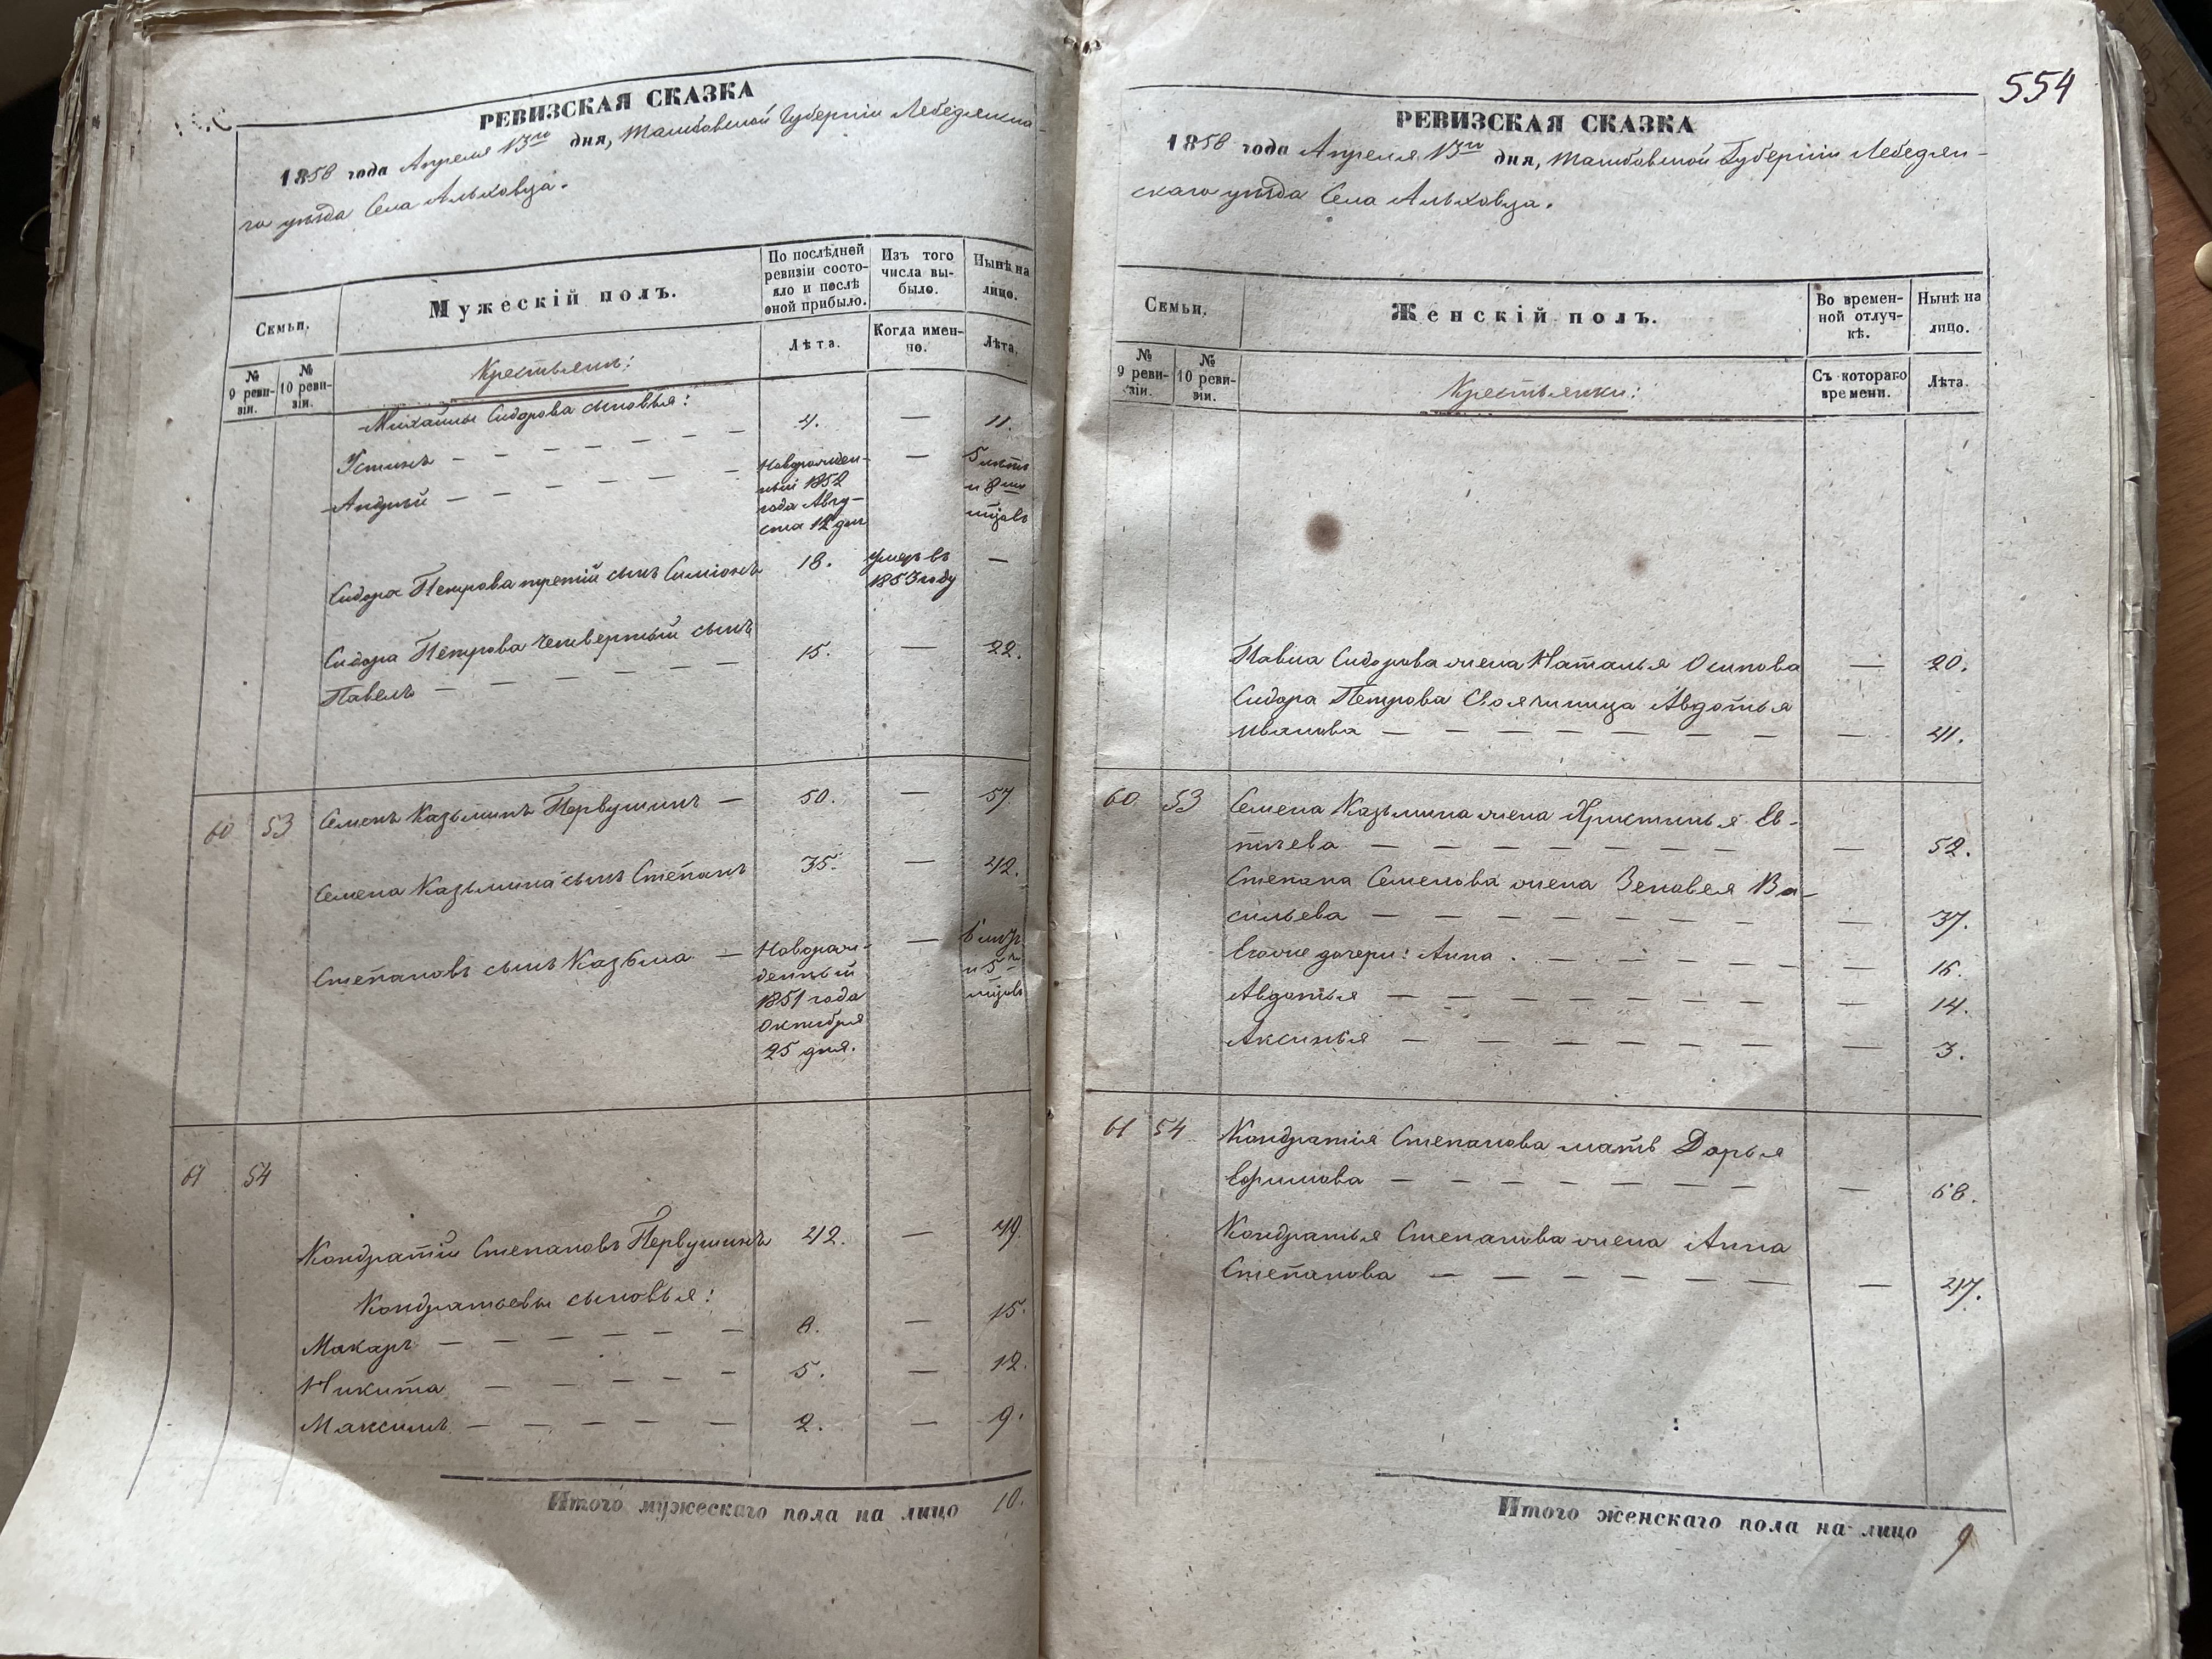 РЕВИЗСКАЯ СКАЗКА
1858 года Апреля 13го дня, Тамбовской Губернiи Лебедянска-
го уѣзда Села Альховца.
Семьи.
Мужескій полъ.
По послѣдней
ревизіи состо-
яло и послѣ
оной прибыло.
Изъ того
числа вы-
было.
Нынѣ на
лицо.
№
9 реви-
зіи.
№
10 реви-
зіи.
Крестьяне:
Лѣта.
Когда имен-
но.
Лѣта.
Михайлы Сидорова сыновья:
Устинъ — — — — — — 4. — 11.
Андрей — — — — — —
Новорожден-
ный 1852
года Авгу-
ста 12 дня
—
5 лѣтъ
и 8
мѣсяцовъ
Сидора Петрова третiй сынъ Симiонъ 18.
умеръ въ
1853 году
—
Сидора Петрова четвертый сынъ
Павелъ — — — — — — 15. — 22.
60 53 Семенъ Казьминъ Первушинъ — 50. — 57.
Семена Казьмина сынъ Степанъ 35. — 42.
Степановъ сынъ Казьма —
Новорож-
денный
1851 года
Октября
25 дня.
—
6 лѣтъ
и 5
мѣсяцовъ
61 54
Кондратiй Степановъ Первушинъ 42. — 49.
Кондратьевы сыновья:
Макаръ — — — — — — 8. — 15.
Никита — — — — — 5. — 12.
Максимъ — — — — — — 2. — 9.
Итого мужескаго пола на лицо 10.
554
РЕВИЗСКАЯ СКАЗКА
1858 года Апреля 13го дня, Тамбовской Губернiи Лебедян-
скаго уѣзда Села Альховца.
Семьи.
Женскій полъ.
Во времен-
ной отлуч-
кѣ.
Нынѣ на
лицо.
№
9 реви-
зіи.
№
10 реви-
зіи.
Крестьянки:
Съ котораго
времени.
Лѣта.
Павла Сидорова жена Наталья Осипова — 20.
Сидора Петрова Своячиница Авдотья
Иванова — — — — — — — — 41.
60 53 Семена Казьмина жена Христинья Ев-
тѣева — — — — — — — — 52.
Степана Семенова жена Зеновея Ва-
сильева — — — — — — — — 37.
Егоже дочери: Анна — — — — — — 16.
Авдотья — — — — — — — — 14.
Аксинья — — — — — — — 3.
61 54 Кондратiя Степанова мать Дарья
Ефимова — — — — — — — — 68.
Кондратья Степанова жена Анна
Степанова — — — — — — — 47.
Итого женскаго пола на лицо 9